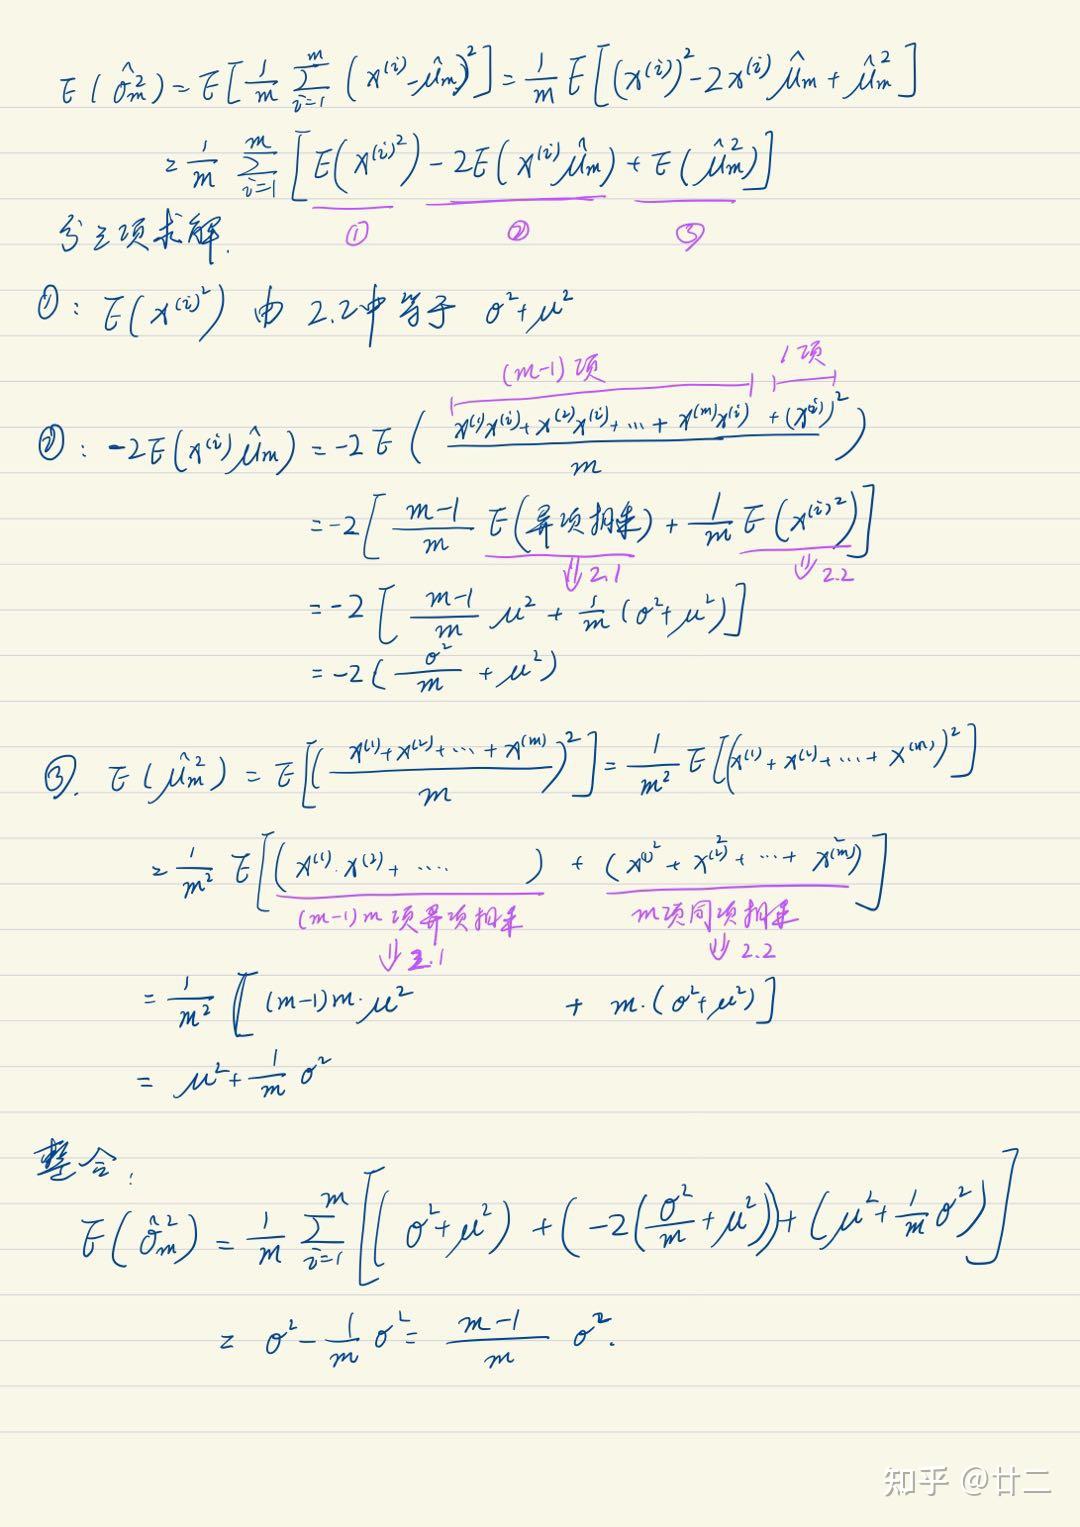 E(σ̂²m) = E[1/m Σ_{i=1}^{m} (x⁽ⁱ⁾ - μ̂m)²] = 1/m E[(x⁽ⁱ⁾)² - 2x⁽ⁱ⁾ μ̂m + μ̂²m]
= 1/m Σ_{i=1}^{m} [E(x⁽ⁱ⁾²) - 2E(x⁽ⁱ⁾μ̂m) + E(μ̂²m)]
① ② ③
分三项求解.
①: E(x⁽ⁱ⁾²) 由 2.2中等于 σ²+μ²
(m-1)项 1项
②: -2E(x⁽ⁱ⁾μ̂m) = -2E((x⁽¹⁾x⁽ⁱ⁾+x⁽²⁾x⁽ⁱ⁾+…+x⁽ᵐ⁾x⁽ⁱ⁾+(x⁽ⁱ⁾)²)/m)
= -2[(m-1)/m E(异项相乘) + 1/m E(x⁽ⁱ⁾²)]
⇓2.1 ⇓2.2
= -2[(m-1)/m μ² + 1/m(σ²+μ²)]
= -2(σ²/m + μ²)
③. E(μ̂²m) = E[((x⁽¹⁾+x⁽²⁾+…+x⁽ᵐ⁾)/m)²] = 1/m² E[(x⁽¹⁾+x⁽²⁾+…+x⁽ᵐ⁾)²]
= 1/m² E[(x⁽¹⁾·x⁽²⁾+…) + (x⁽¹⁾²+x⁽²⁾²+…+x⁽ᵐ⁾²)]
(m-1)m 项异项相乘 m项同项相乘
⇓2.1 ⇓2.2
= 1/m² [(m-1)m·μ² + m·(σ²+μ²)]
= μ²+1/m σ²
整合:
E(σ̂²m) = 1/m Σ_{i=1}^{m} [(σ²+μ²) + (-2(σ²/m+μ²)) + (μ²+1/m σ²)]
= σ² - 1/m σ² = (m-1)/m σ².
知乎 @廿二